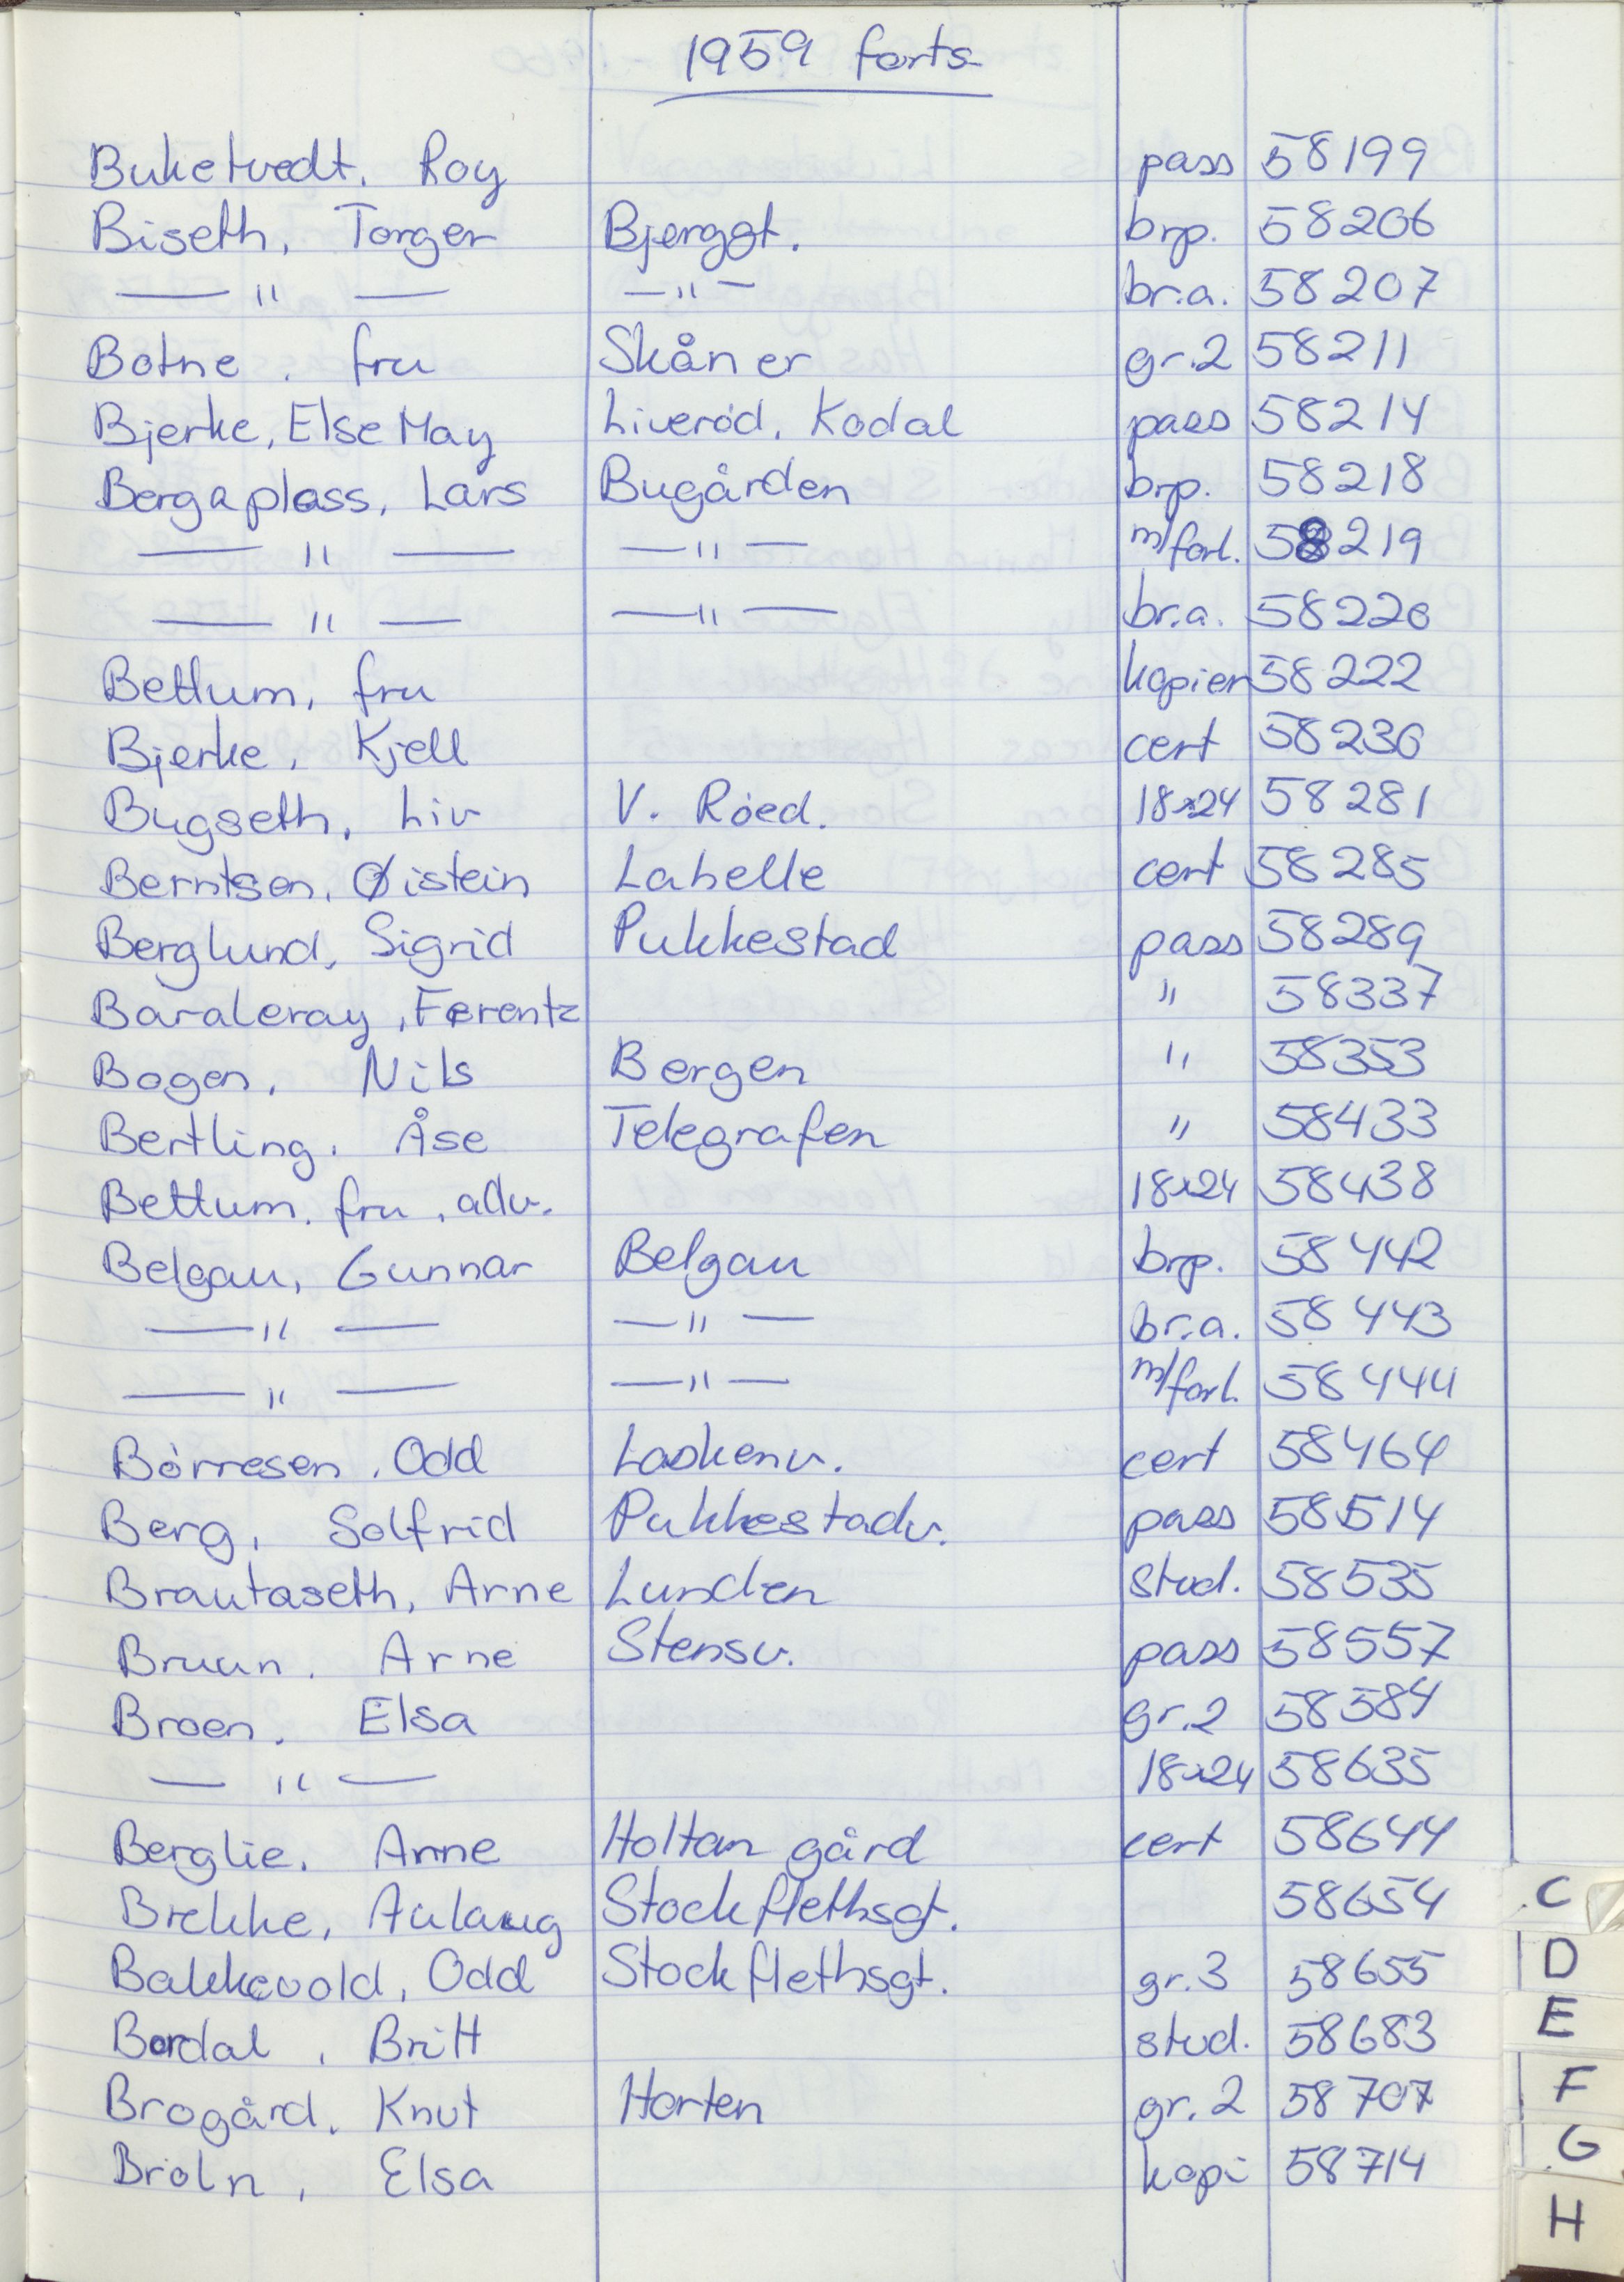 1959 forts.
Buketvedt, Roy pass 58199
Biseth, Torger Bjerggt. brp. 58206
— " — — " — br.a. 58207
Botne, fru Skåner gr.2 58211
Bjerke, Else May Liveröd, Kodal pass 58214
Bergaplass, Lars Bugården brp. 58218
— " — — " — m/forl. 58219
— " — — " — br.a. 58220
Bettum, fru kopier 58222
Bjerke, Kjell cert 58230
Bugseth, Liv V. Röed. 18x24 58281
Berntsen, Øistein Labelle cert 58285
Berglund, Sigrid Pukkestad pass 58289
Baraleray, Ferentz " 58337
Bogen, Nils Bergen " 58353
Bertling, Åse Telegrafen " 58433
Bettum, fru, adv. 18x24 58438
Belgau, Gunnar Belgau brp. 58442
— " — — " — br.a. 58443
— " — — " — m/forl. 58444
Börresen, Odd Laskenv. cert 58464
Berg, Solfrid Pukkestadv. pass 58514
Brautaseth, Arne Lunden stud. 58535
Bruun, Arne Stensv. pass 58557
Broen, Elsa gr.2 58584
— " — 18x24 58635
Berglie, Anne Holtan gård cert 58644
Brekke, Aulaug Stockflethsgt. 58654
Bakkevold, Odd Stockflethsgt. gr.3 58655
Bordal, Britt stud. 58683
Brogård, Knut Horten gr.2 58707
Bröln, Elsa kopi 58714
C
D
E
F
G
H